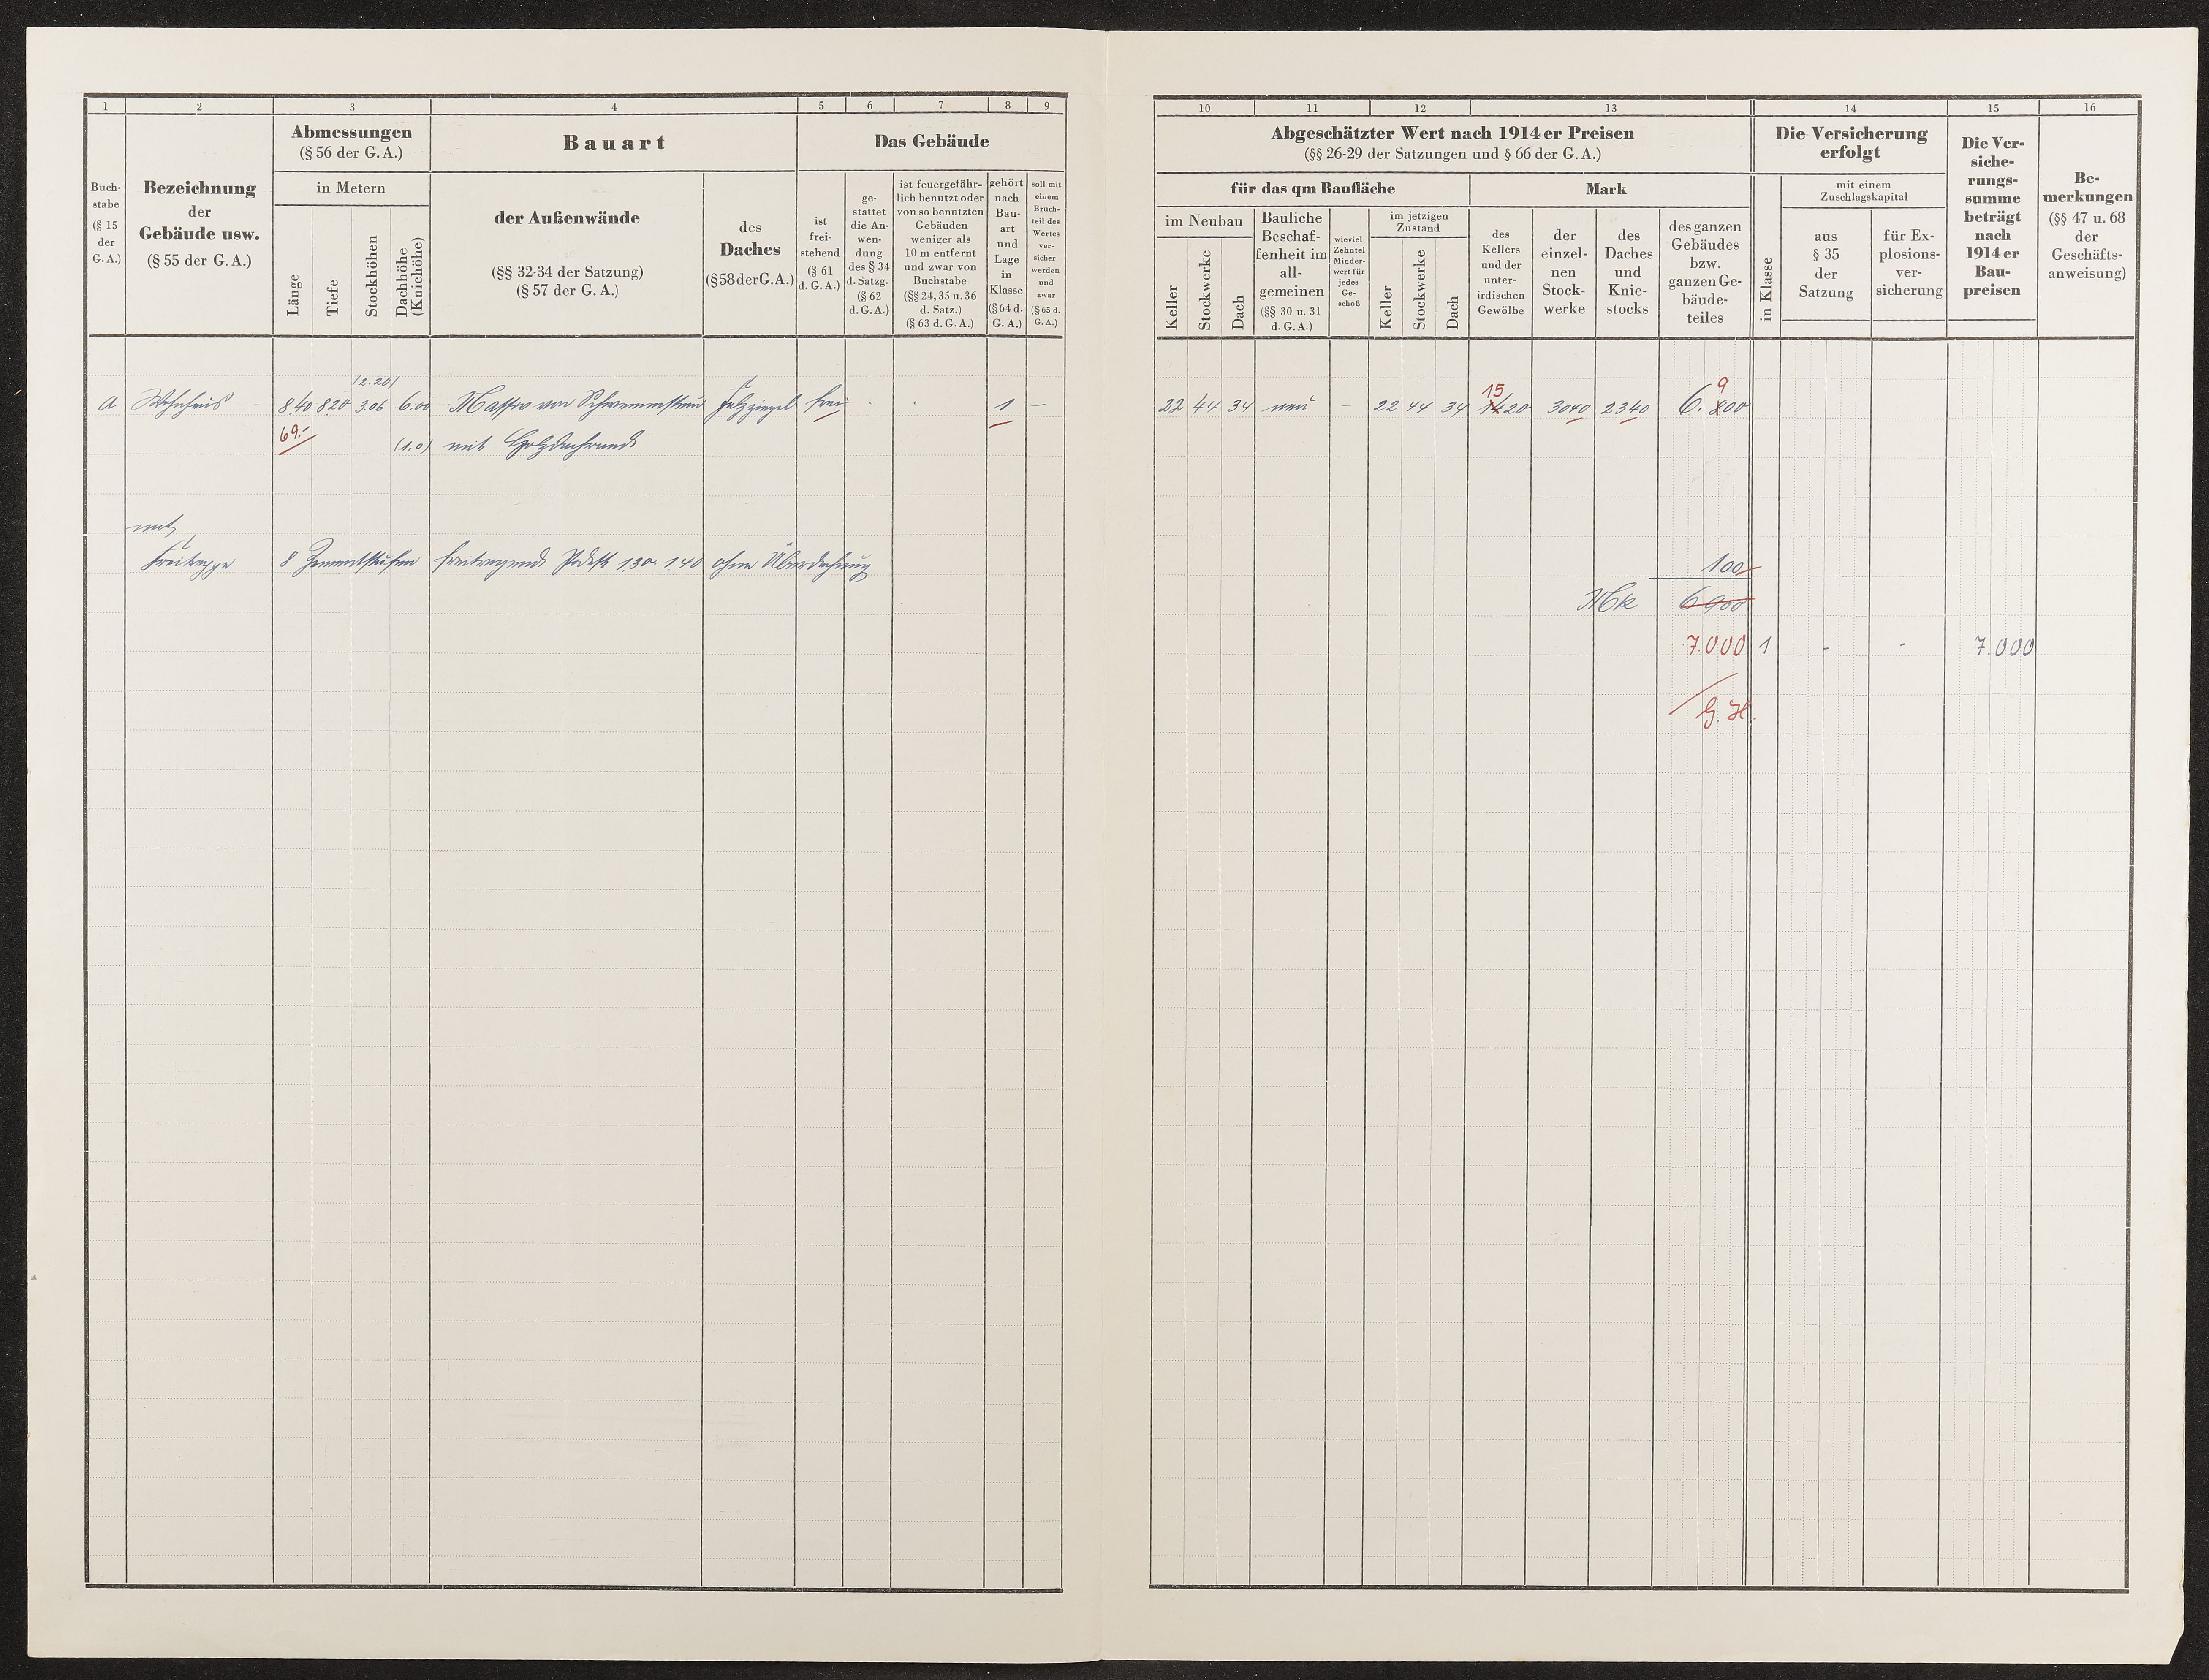 1 2 3 4 5 6 7 8 9
Buch-
stabe
(§ 15
der
G. A.)
Bezeichnung
der
Gebäude usw.
(§ 55 der G. A.)
Abmessungen
(§ 56 der G. A.)
in Metern
Länge
Tiefe
Stockhöhen
Dachhöhe
(Kniehöhe)
Bauart
der Außenwände
(§§ 32-34 der Satzung)
(§ 57 der G. A.)
des
Daches
(§ 58 der G. A.)
Das Gebäude
ist
frei-
stehend
(§ 61
d. G. A.)
ge-
stattet
die An-
wen-
dung
des § 34
d. Satzg.
(§ 62
d. G. A.)
ist feuergefähr-
lich benutzt oder
von so benutzten
Gebäuden
weniger als
10 m entfernt
und zwar von
Buchstabe
(§§ 24, 35 u. 36
d. Satz.)
(§ 63 d. G. A.)
gehört
nach
Bau-
art
und
Lage
in
Klasse
(§ 64 d.
G. A.)
soll mit
einem
Bruch-
teil des
Wertes
ver-
sicher
werden
und
zwar
(§ 65 d.
G. A.)
(2.20)
A Wohnhaus 8.40 8.20 3.06 6.00 Massiv von Schwemmstein Falzziegel frei - - 1 —
69.- (1.0) mit Holzdachrand
mit
Freitreppe 8 Zementstufen freitragend Podest 1.30 1.40 ohne Überdachung
10 11 12 13 14 15 16
Abgeschätzter Wert nach 1914 er Preisen
(§§ 26-29 der Satzungen und § 66 der G. A.)
für das qm Baufläche
im Neubau
Keller
Stockwerke
Dach
Bauliche
Beschaf-
fenheit im
all-
gemeinen
(§§ 30 u. 31
d. G. A.)
wieviel
Zehntel
Minder-
wert für
jedes
Ge-
schoß
im jetzigen
Zustand
Keller
Stockwerke
Dach
Mark
des
Kellers
und der
unter-
irdischen
Gewölbe
der
einzel-
nen
Stock-
werke
des
Daches
und
Knie-
stocks
des ganzen
Gebäudes
bzw.
ganzen Ge-
bäude-
teiles
Die Versicherung
erfolgt
in Klasse
mit einem
Zuschlagskapital
aus
§ 35
der
Satzung
für Ex-
plosions-
ver-
sicherung
Die Ver-
siche-
rungs-
summe
beträgt
nach
1914 er
Bau-
preisen
Be-
merkungen
(§§ 47 u. 68
der
Geschäfts-
anweisung)
15 9
22 44 34 neu — 22 44 34 1420 3040 2340 6.800
100
Mk 6900
7.000 1 - - 7.000
G. H.